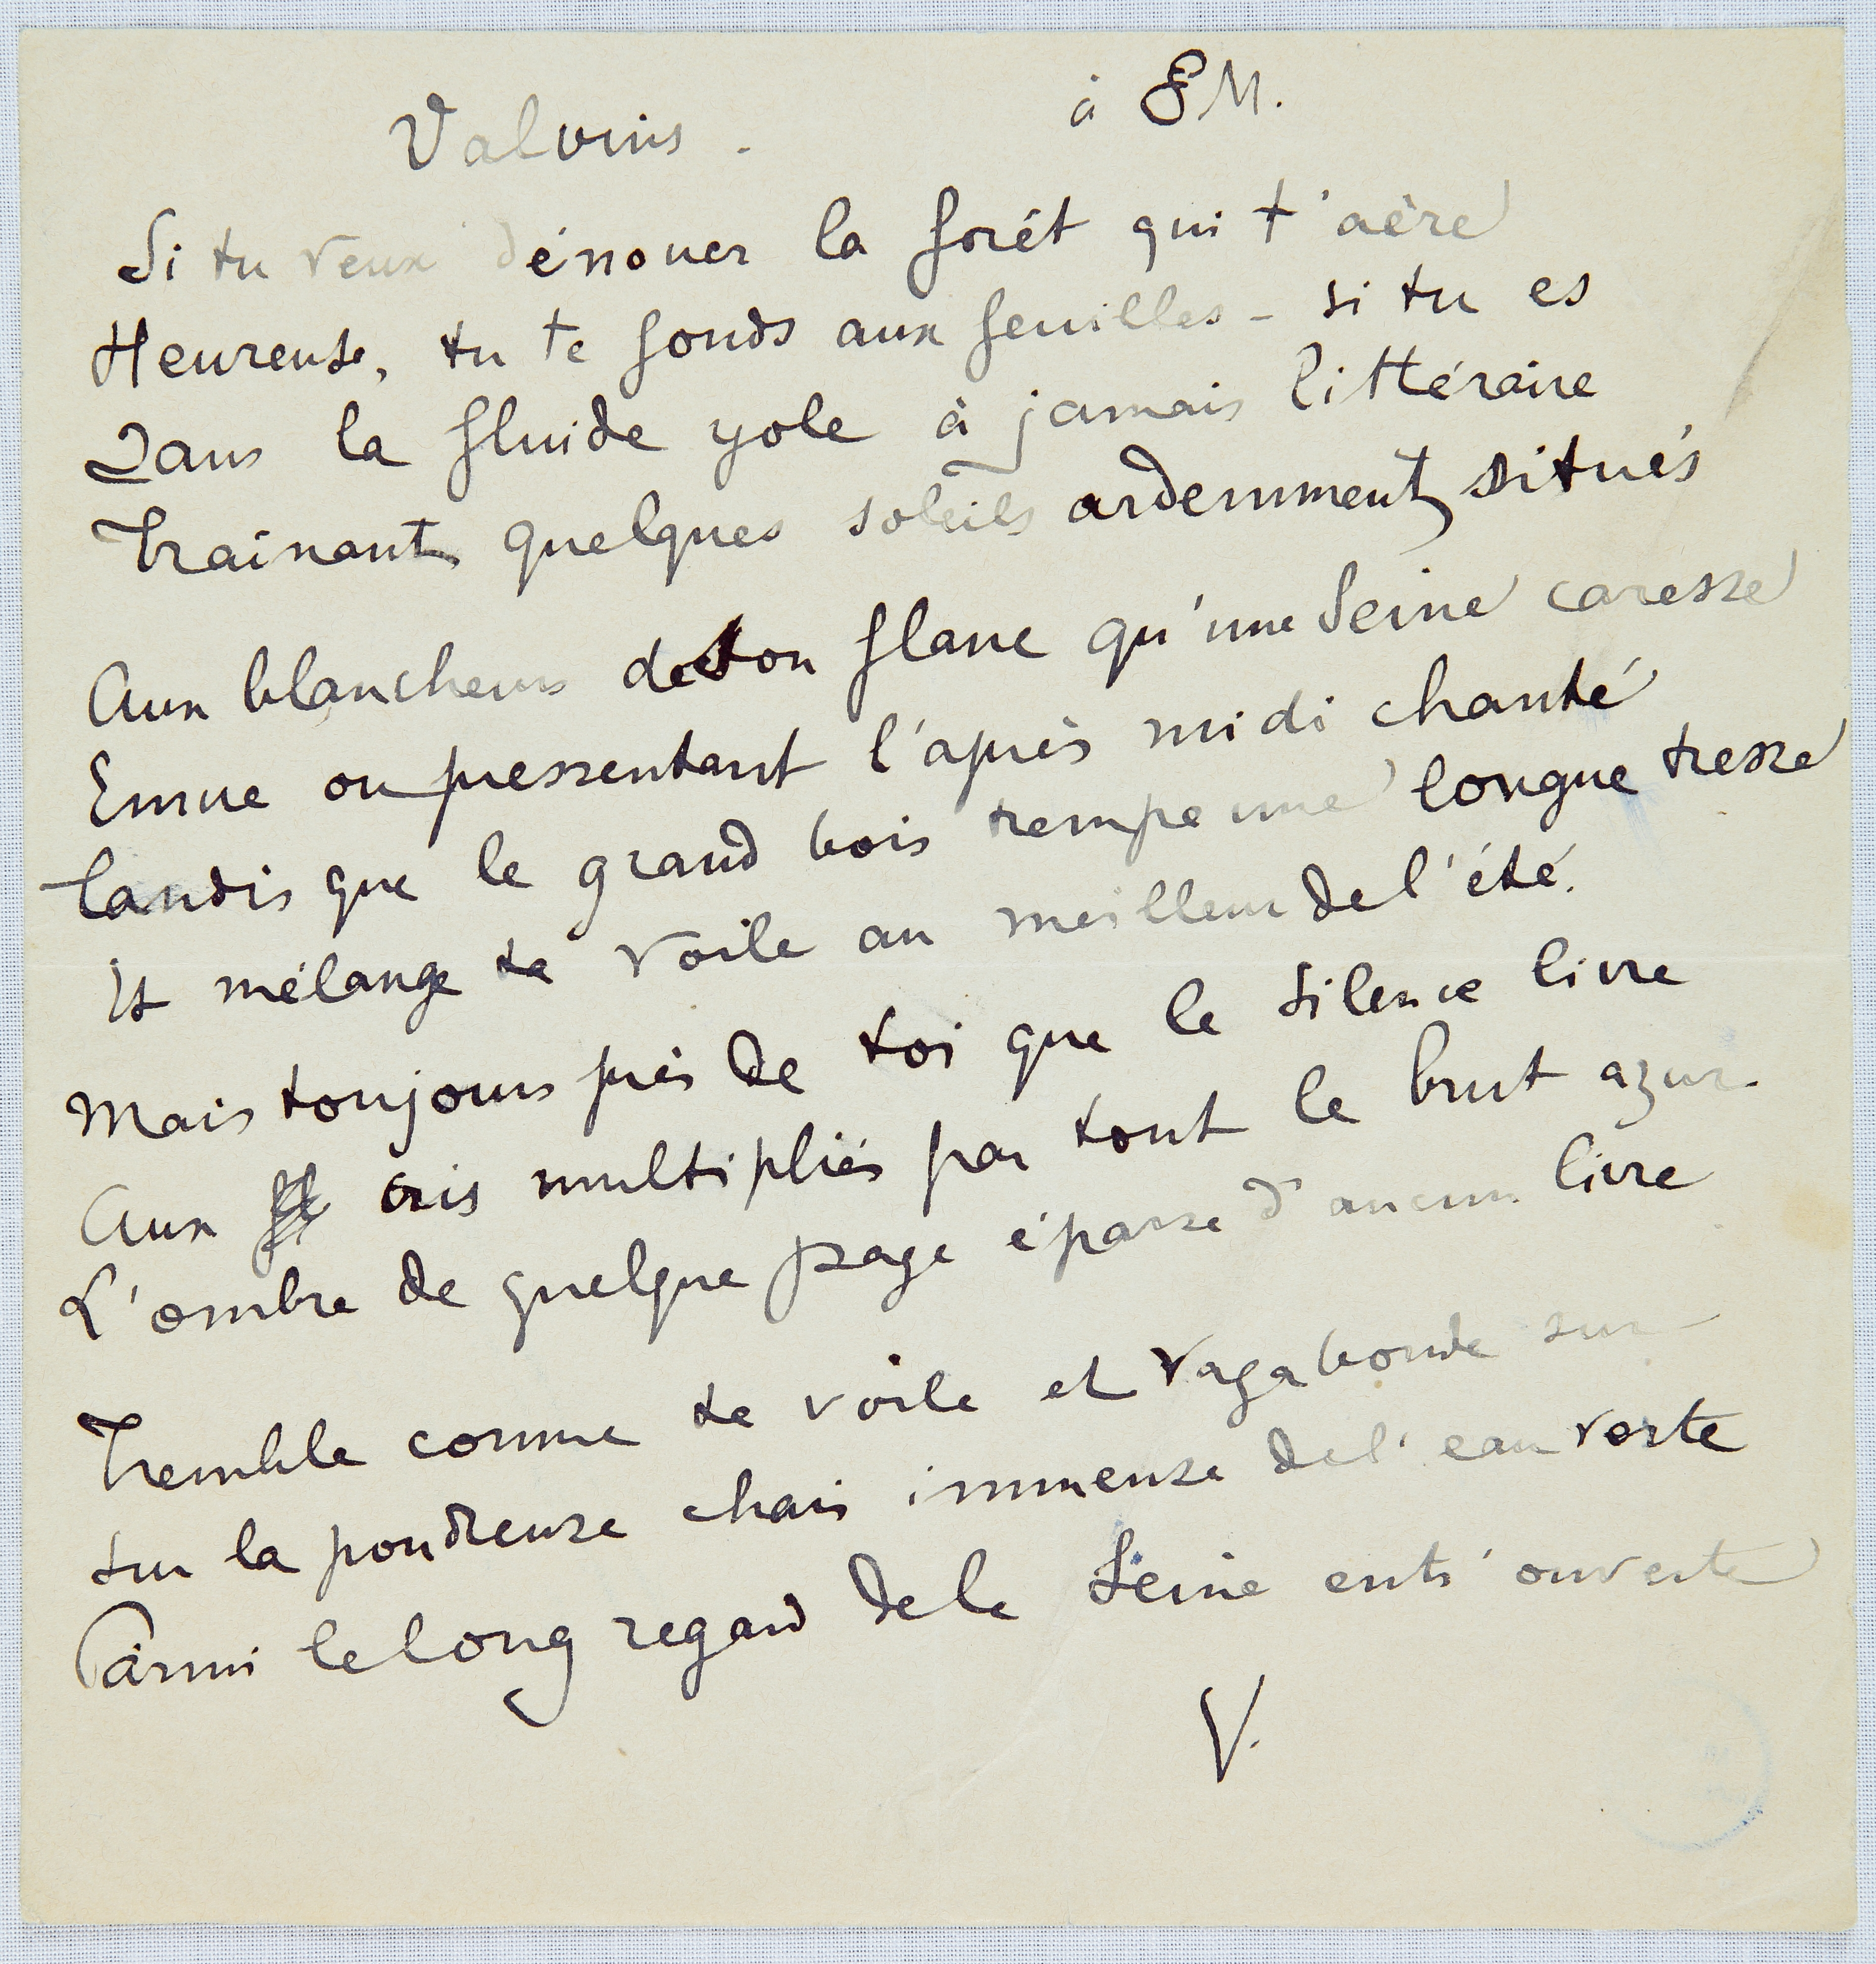 Valvins.
à SM.
Si tu veux dénouer la forêt qui t'aère
Heureuse, tu te fonds aux feuilles - si tu es
Dans la fluide yole à jamais littéraire
Trainant quelques soleils ardemment situés
Aux blancheurs de son flanc qu'une Seine caresse
Emue ou pressentant l'après midi chanté
Tandis que le grand bois trempe une longue tresse
Et mélange ta voile au meilleur de l'été.
Mais toujours près de toi que le silence livre
Aux cris multipliés par tout le brut azur
L'ombre de quelque page éparse d'aucun livre
Tremble comme ta voile et vagabonde sur
Sur la poudreuse chair immense de l'eau verte
Parmi le long regard de la Seine entr'ouverte
V.